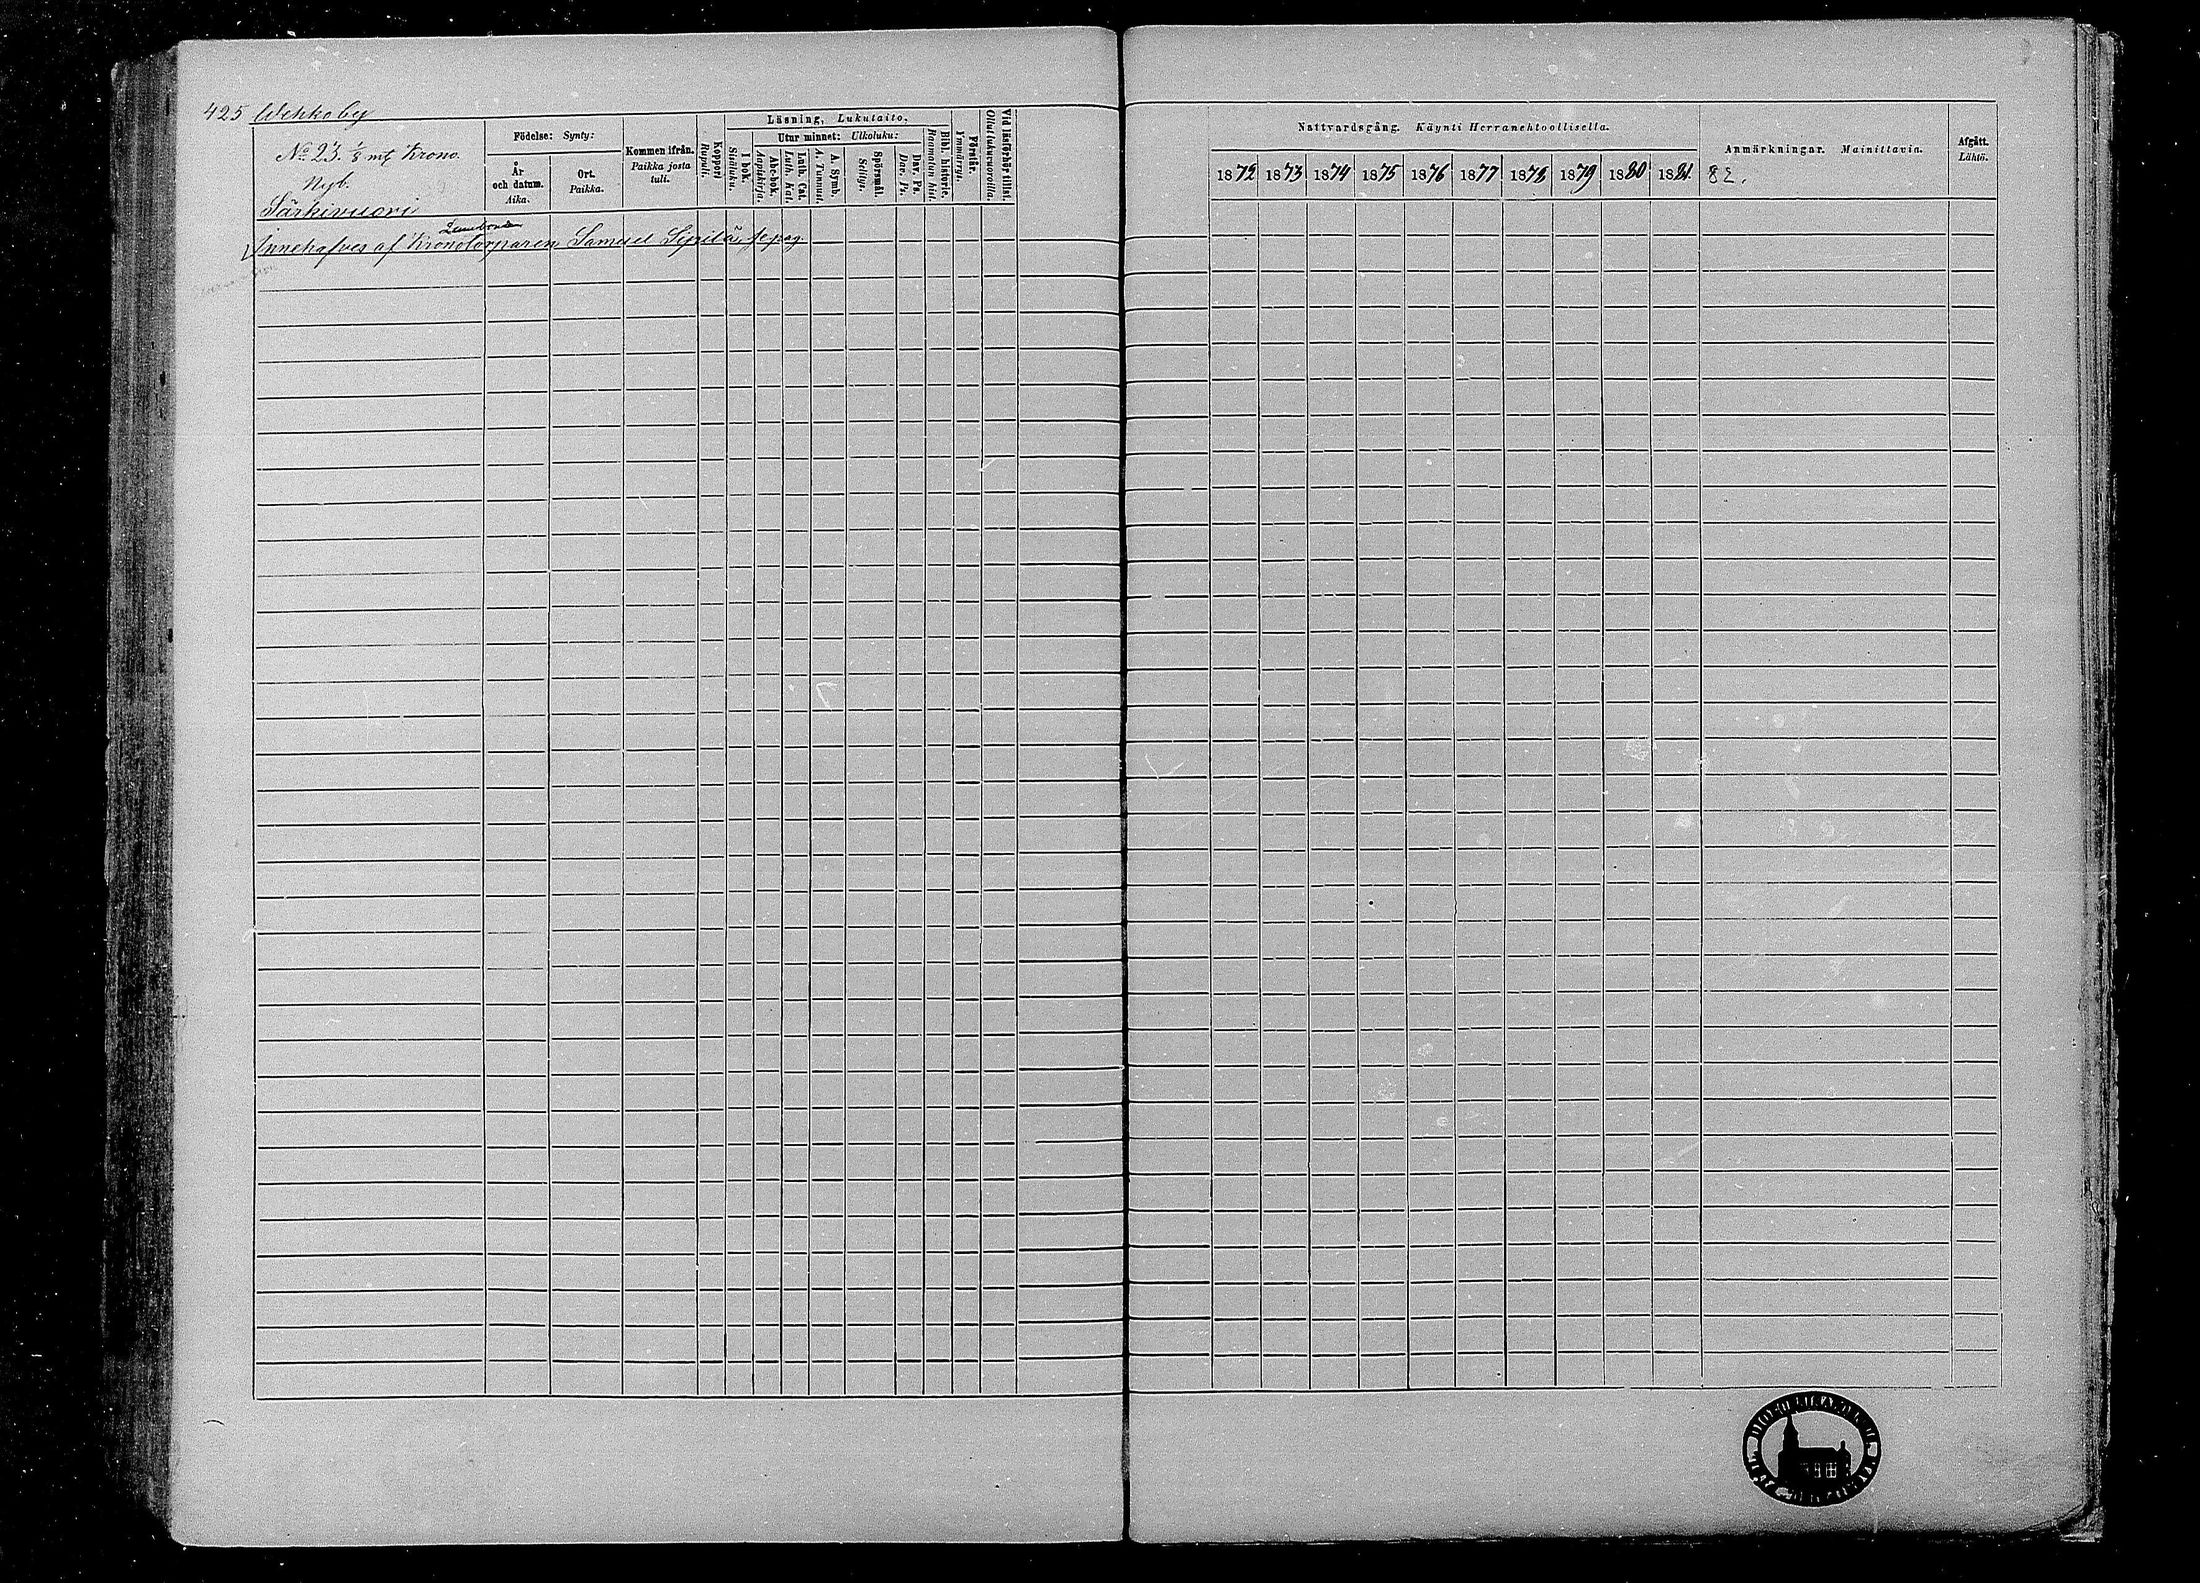 425 Wehkoby
No 23. 1/8 mt Krono.
Nyb.
Särkivuori
Födelse: Synty:
År och datum. Aika.
Ort. Paikka.
Kommen ifrån. Paikka josta tuli.
Koppor: Rupuli.
Läsning, Lukutaito.
I bok. Sisäluku.
Utur minnet: Ulkoluku:
Abc-bok. Aapiskirja.
Luth. Cat. Luth. Kat.
A. Symb. A. Tunnust.
Spörsmål. Selitys.
Dav. Ps. Dav. Ps.
Bibl. historie. Raamatun hist.
Förstår. Ymmärrys.
Vid läsförhör tillst. Ollut lukuvuoroilla.
Innehafves af Kronotorparen Samuel Sipilä, se pag.
Nattvardsgång. Käynti Herranehtoollisella.
1872 1873 1874 1875 1876 1877 1878 1879 1880 1881 82.
Anmärkningar. Mainittavia.
Afgått. Lähtö.